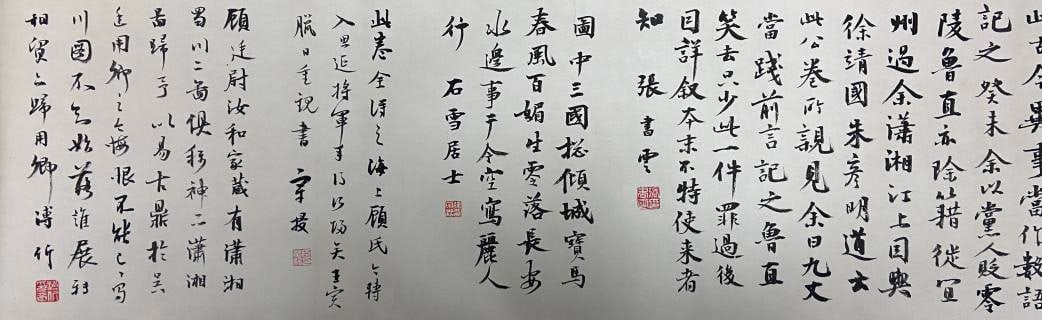 此古今異事當作數語
記之癸未余以黨人貶零
陵魯直亦除籍徙宜
州過余瀟湘江上因與
徐靖國朱彥明道云
此公卷所親見余曰九丈
當踐前言記之魯直
笑去只少此一件罪過後
因詳叙本末不特使來者
知 張 書雲
圖中三國總傾城寶馬
春風百媚生零落長安
水邊事于今空寫麗人
行 石雪居士
此卷余得之海上顧氏今轉
入思
臘日重觀書
顧廷尉汝和家藏有瀟湘
蜀川二圖俱稱神二瀟湘
圖歸予以易古鼎於吳
廷用卿之悔恨不能已
川圖不知始落誰展
相賀之歸用卿